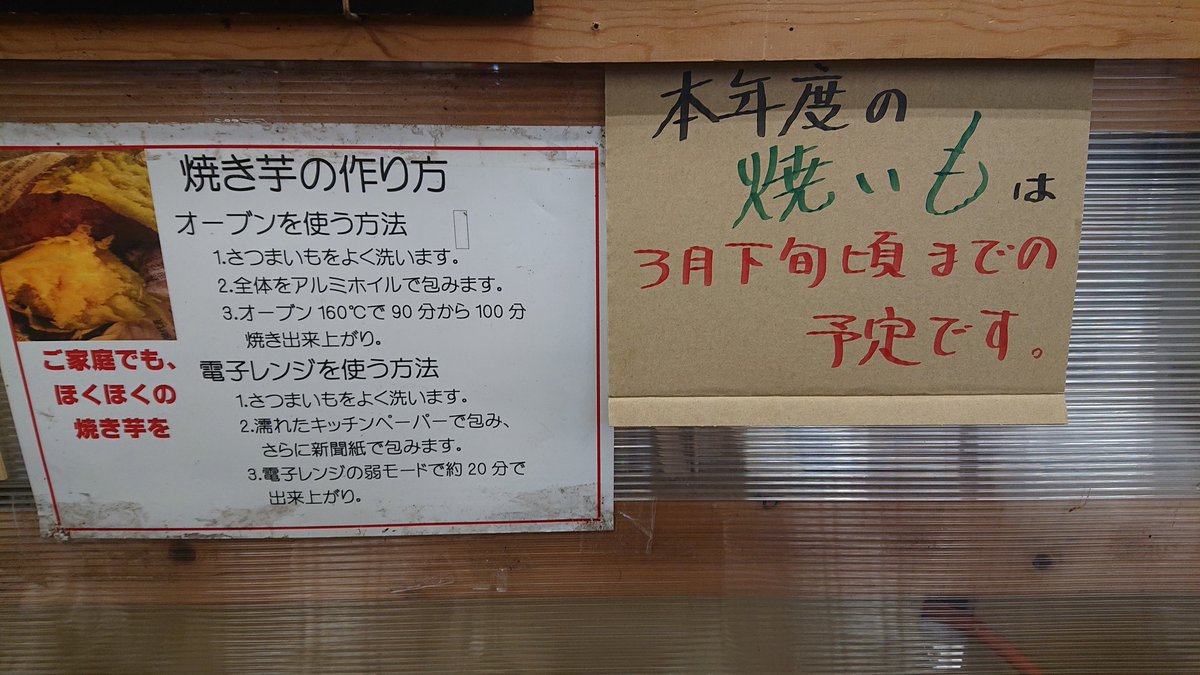 焼き芋の作り方
オーブンを使う方法
1.さつまいもをよく洗います。
2.全体をアルミホイルで包みます。
3.オーブン160℃で90分から100分
焼き出来上がり。
電子レンジを使う方法
1.さつまいもをよく洗います。
2.濡れたキッチンペーパーで包み、
さらに新聞紙で包みます。
3.電子レンジの弱モードで約20分で
出来上がり。
ご家庭でも、
ほくほくの
焼き芋を
本年度の
焼いもは
3月下旬頃までの
予定です。